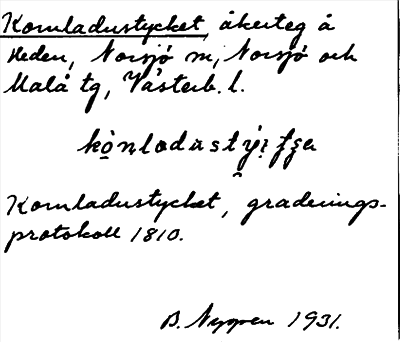 Kornladustycket, åkerteg å
Heden, Norsjö m, Norsjö och
Malå tg, Västerb. l.
Kornladustycket, graderings-
protokoll 1810.
B. Nyggren 1931.